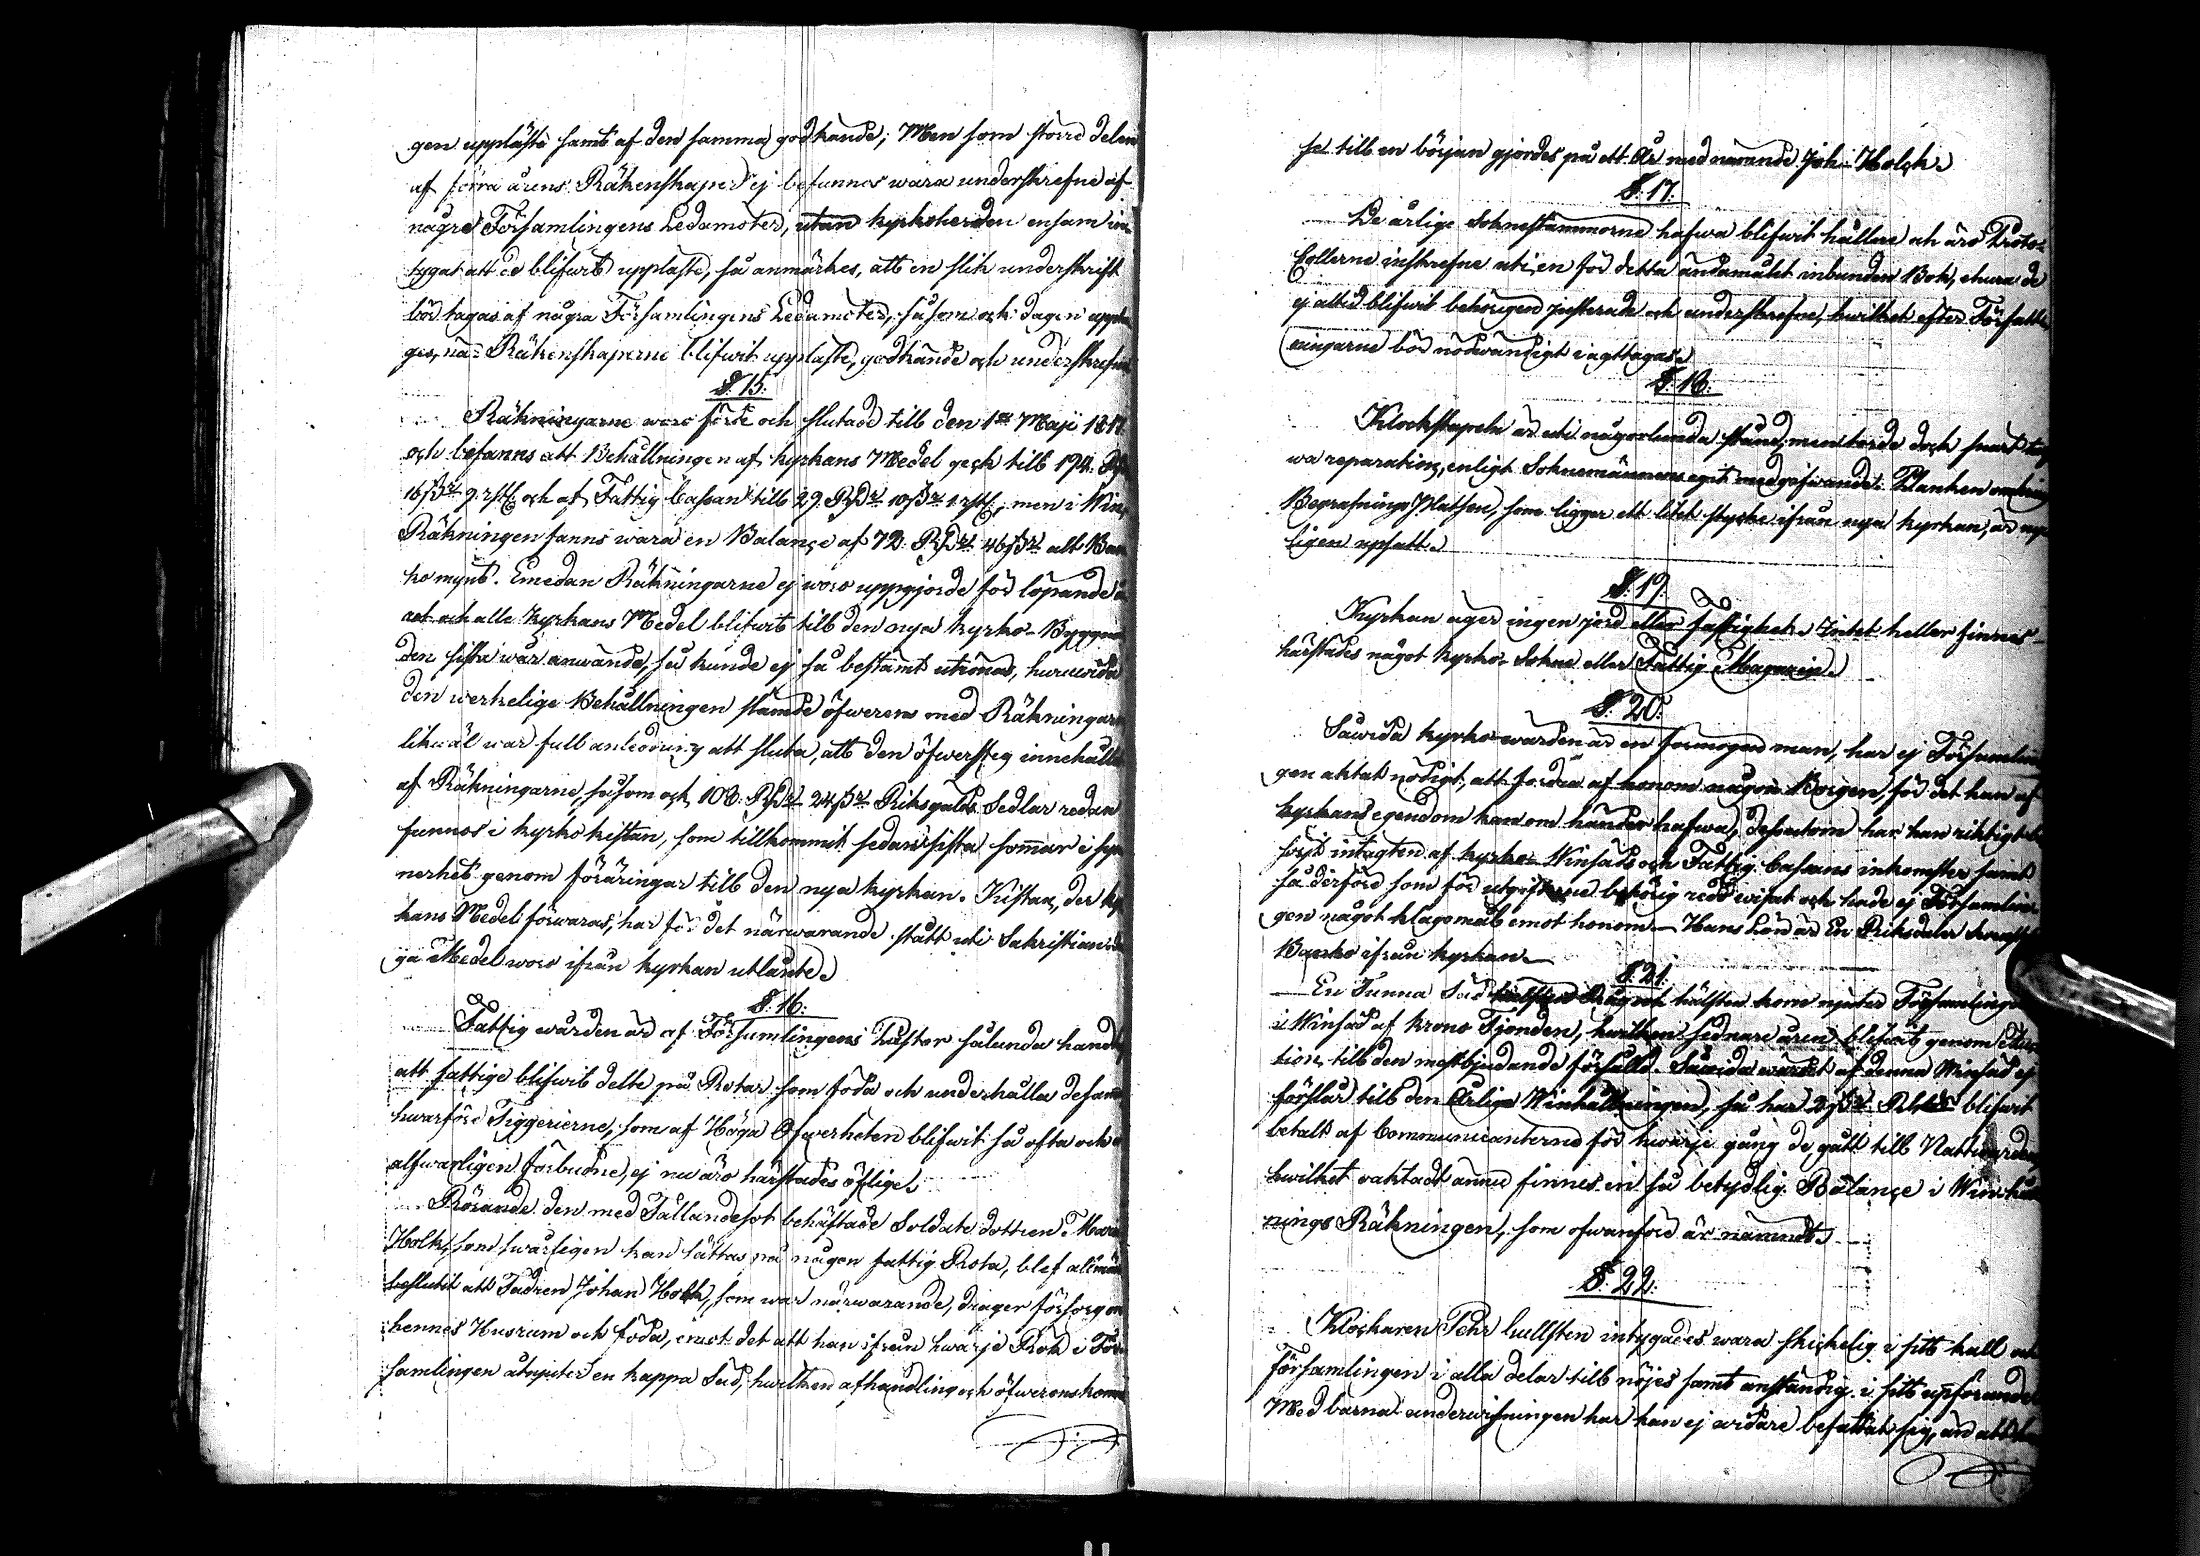 gen uppläste samt af den samma godkände; Men som större delen
af förra årens Räkenskaper ej befunnos wara underskrefne af
någre Församlingens Ledamoter, utan kyrkoherden ensam in-
tygat att de blifwit uppläste, så anmärkes, att en slik underskrift
bör tagas af några Församlingens Ledamoter, såsom och dagen uppta
ges, när Räkenskaperne blifwit uppläste, godkände och underskrefne
§. 15.
Räkningarne woro förde och slutade till den 1ste Maji 1817
och befanns att Behållningen af kyrkans Medel geck till 194 Rd
16 sr 9 rst och af Fattig Cassan till 29 Rdr 10 sr 1 rst, men i Win
Räkningen fanns wara en Balance af 72 Rdr 46 sr alt Ban
ko mynt. Emedan Räkningarne ej woro uppgjorde för löpande å
ret och alle kyrkans Medel blifwit till den nya kyrko-Byggna
den sista wår använde, så kunde ej så bestämt utrönas, huruwida
den werkelige Behållningen stämde öfwerens med Räkningarne
likwäl war full anledning att sluta, att den öfwersteg innehållet
af Räkningarne, såsom ock 108 Rdr 24 sr Riksgälds Sedlar redan
funnos i kyrko kistan, som tillkommit sedan sista sommar i syn
nerhet genom föräringar till den nya kyrkan. Kistan, der kyr
kans Medel förwaras, har för det närwarande stått uti Sakristian
ga Medel woro ifrån kyrkan utlånte.
§. 16.
Fattigwården är af Församlingens Pastor sålunda hand
att fattige blifwit delte på Rotar som föda och underhålla desamme
hwarföre Tiggerierne, som af Höga Öfwerheten blifwit så ofta och
alfwarligen förbudne, ej nu äro härstädes öflige.
Rörande den med Fallandesot behäftade Soldate dottren Maria
Holk, som swårligen kan sättas på någon fattig Rota, blef allmän
beslutit att Fadren Johan Holk, som war närwarande, drager försorg om
hennes Husrum och föda, emot det att han ifrån hwarje Rök i För
samlingen åtnjuter en kappa Säd, hwilken afhandling och öfwerenskomm
se till en början gjordes på ett År med nämnde Joh. Holck.
§. 17.
De årlige Sokne stämmorne hafwa blifwit hållne och äro Proto-
collerne inskrefne uti en för detta ändamålet inbunden Bok, ehuru de
ej altid blifwit behörigen justerade och underskrefne, hwilket efter Författ
ningarne bör nödwändigt iagttagas.
§. 18.
Klockstapeln är uti någorlunda stånd, men torde dock snart
wa reparation, enligt Soknemännens eget medgifwande. Planken omkring
Begrafnings Platsen, som ligger ett litet stycke ifrån nya kyrkan, är ny
ligen upsatt.
§. 19.
Kyrkan äger ingen jord eller fastighet. Intet heller finnes
härstädes något kyrko-Sokne eller Fattig-Magazin.
§. 20.
Såwida kyrkowärden är en förmögen man, har ej Församlin
gen aktat nödigt, att fordra af honom någon Borgen för det han af
kyrkans egendom kan om händer hafwa, dessutom har han riktigt
fört intagten af kyrko- Winsäds och Fattig Cassans inkomster samt
så derföre som för utgifterne behörig redo wisat och hade ej Församlin
gen något klagomål emot honom. Hans Lön är En Riksdaler
Banko ifrån kyrkan.
§. 21.
En Tunna Säd hälften Råg och hälften korn njuter Församlingen
i Winsäd af krono Tjonden, hwilken sednare åren blifwit genom Auc
tion till den mestbjudande försåld. Såwida wärdet af denna Winsäd ej
förslår till den årlige Winhållningen, så har 2 sr Rgds blifwit
betalt af Communicanterne för hwarje gång de gått till Nattwarden
hwilket oaktadt ännu finnes en så betydlig Balance i Winhåll
nings Räkningen, som ofwanföre är nämndt.
§. 22.
Klockaren Pehr Lullsten intygades wara skickelig i sitt kall och
församlingen i alla delar till nöjes samt anständig i sitt upförande
Med barna underwisningen har han ej widare befattat sig, än att